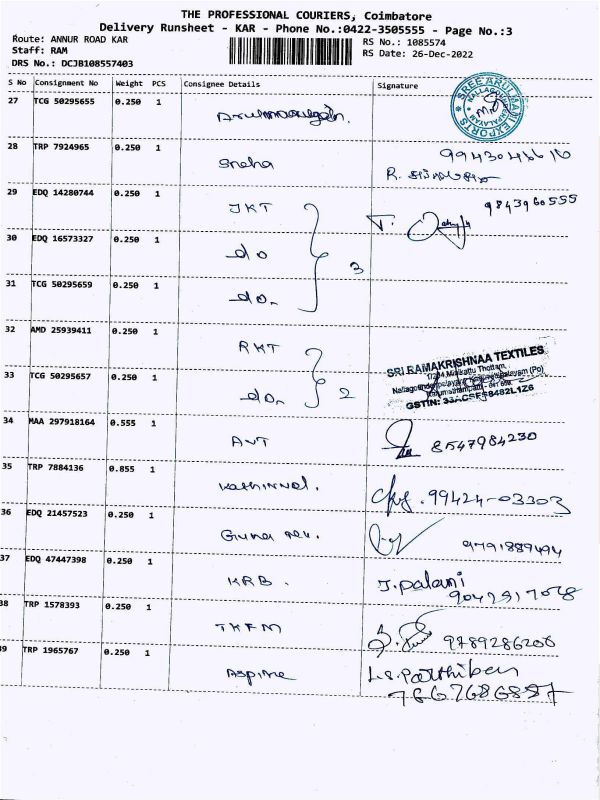 THE PROFESSIONAL COURIERS, Coimbatore
Delivery Runsheet - KAR - Phone No.:0422-3505555 - Page No.:3
Route: ANNUR ROAD KAR
RS No.: 1085574
Staff: RAM
RS Date: 26-Dec-2022
DRS No.: DCJB108557403
S No Consignment No Weight PCS Consignee Details Signature
27 TCG 50295655 0.250 1
SREE ARULMANI EXPORTS
28 TRP 7924965 0.250 1 Sneha
R.
29 EDQ 14280744 0.250 1 JKT 9843960555
30 EDQ 16573327 0.250 1 do 3
31 TCG 50295659 0.250 1 do
32 AMD 25939411 0.250 1 RKT
SRI RAMAKRISHNAA TEXTILES
33 TCG 50295657 0.250 1 do 2
GSTIN:
34 MAA 297918164 0.555 1 AVT 8547984230
35 TRP 7884136 0.855 1 99424-03303
36 EDQ 21457523 0.250 1 Guna 9791889494
37 EDQ 47447398 0.250 1 KRB. J. Palani
38 TRP 1578393 0.250 1 TKFM 9789286206
39 TRP 1965767 0.250 1 Aspine L.S. Parthiban